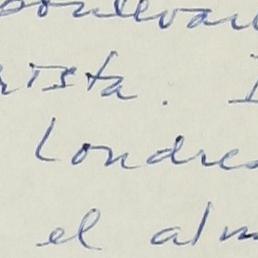 boulevar
rista. I
Londres
el alm